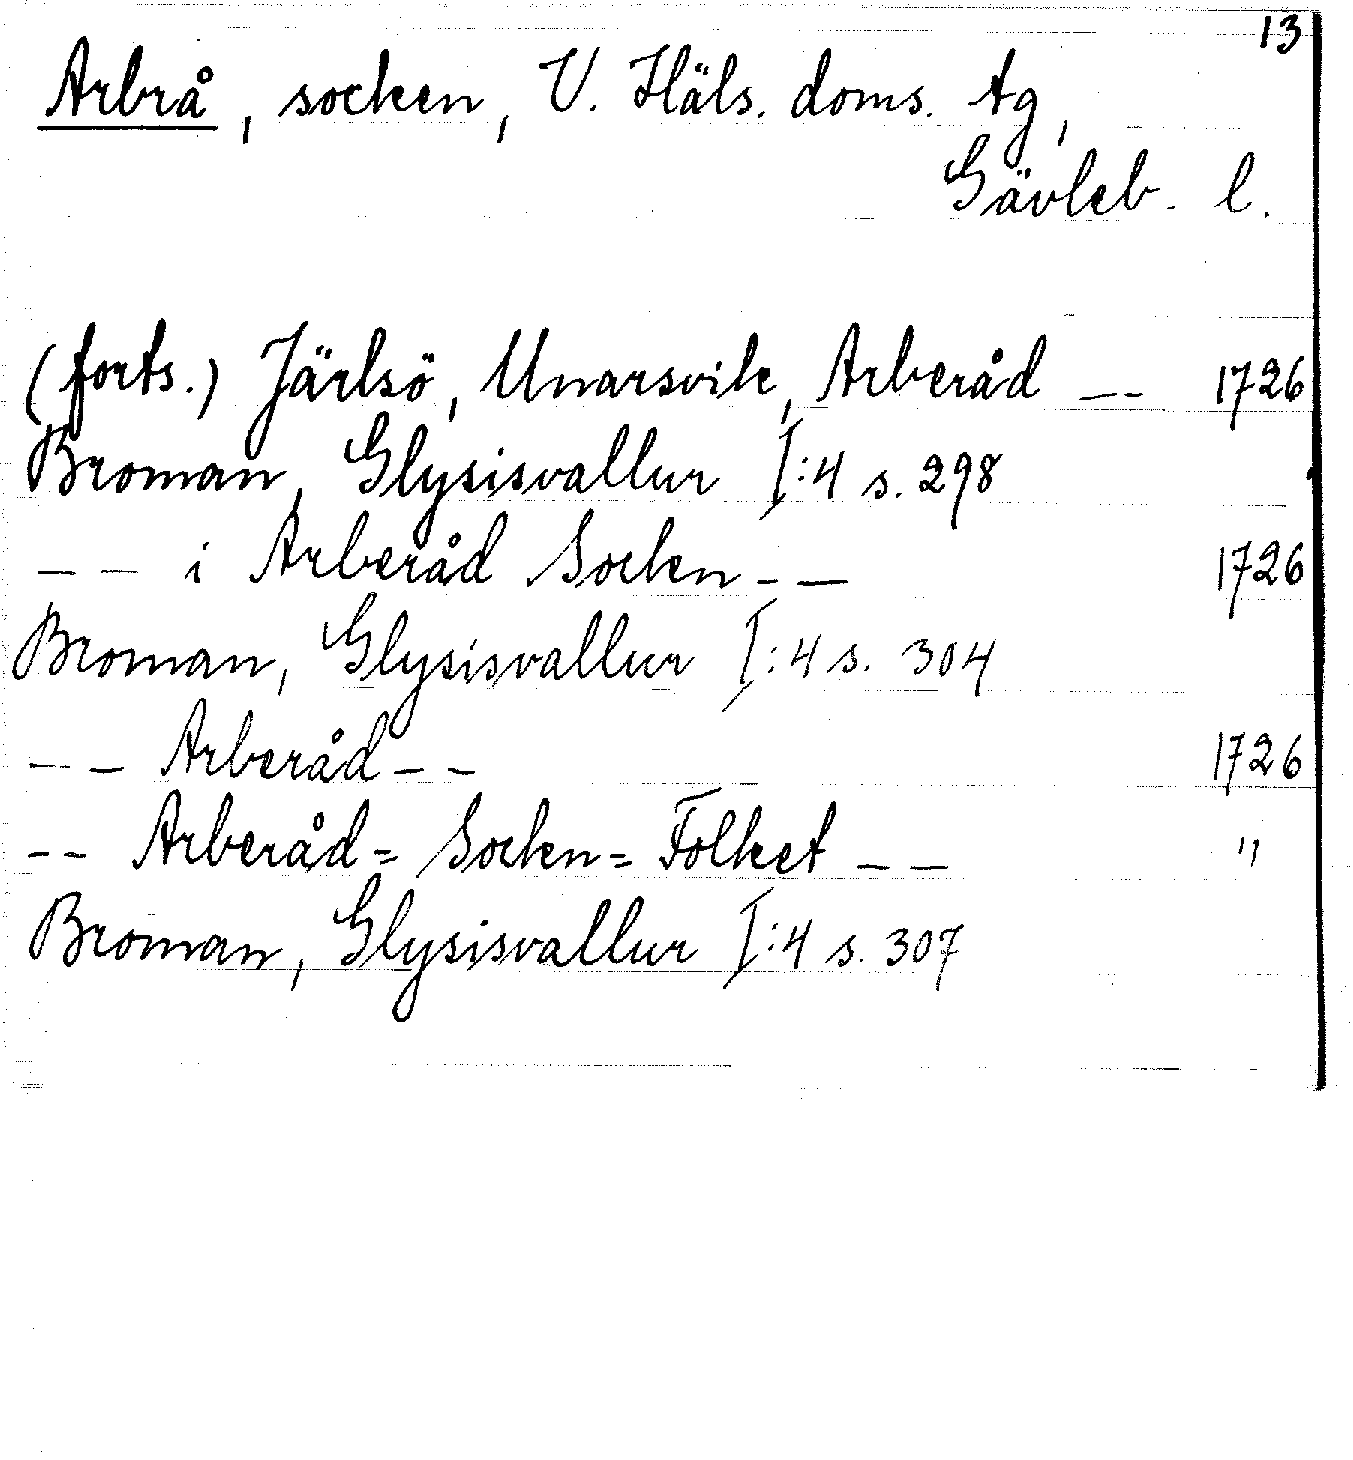 13
Arbrå, socken, V. Häls. doms. tg,
Gävleb. l.
(forts.) Järlsö, Unarsvik, Arberåd -- 1726
Broman, Glysisvallur I:4 s. 298
-- i Arberåd Socken -- 1726
Broman, Glysisvallur I:4 s. 304
-- Arberåd -- 1726
-- Arberåd= Socken= Folket -- "
Broman, Glysisvallur I:4 s. 307